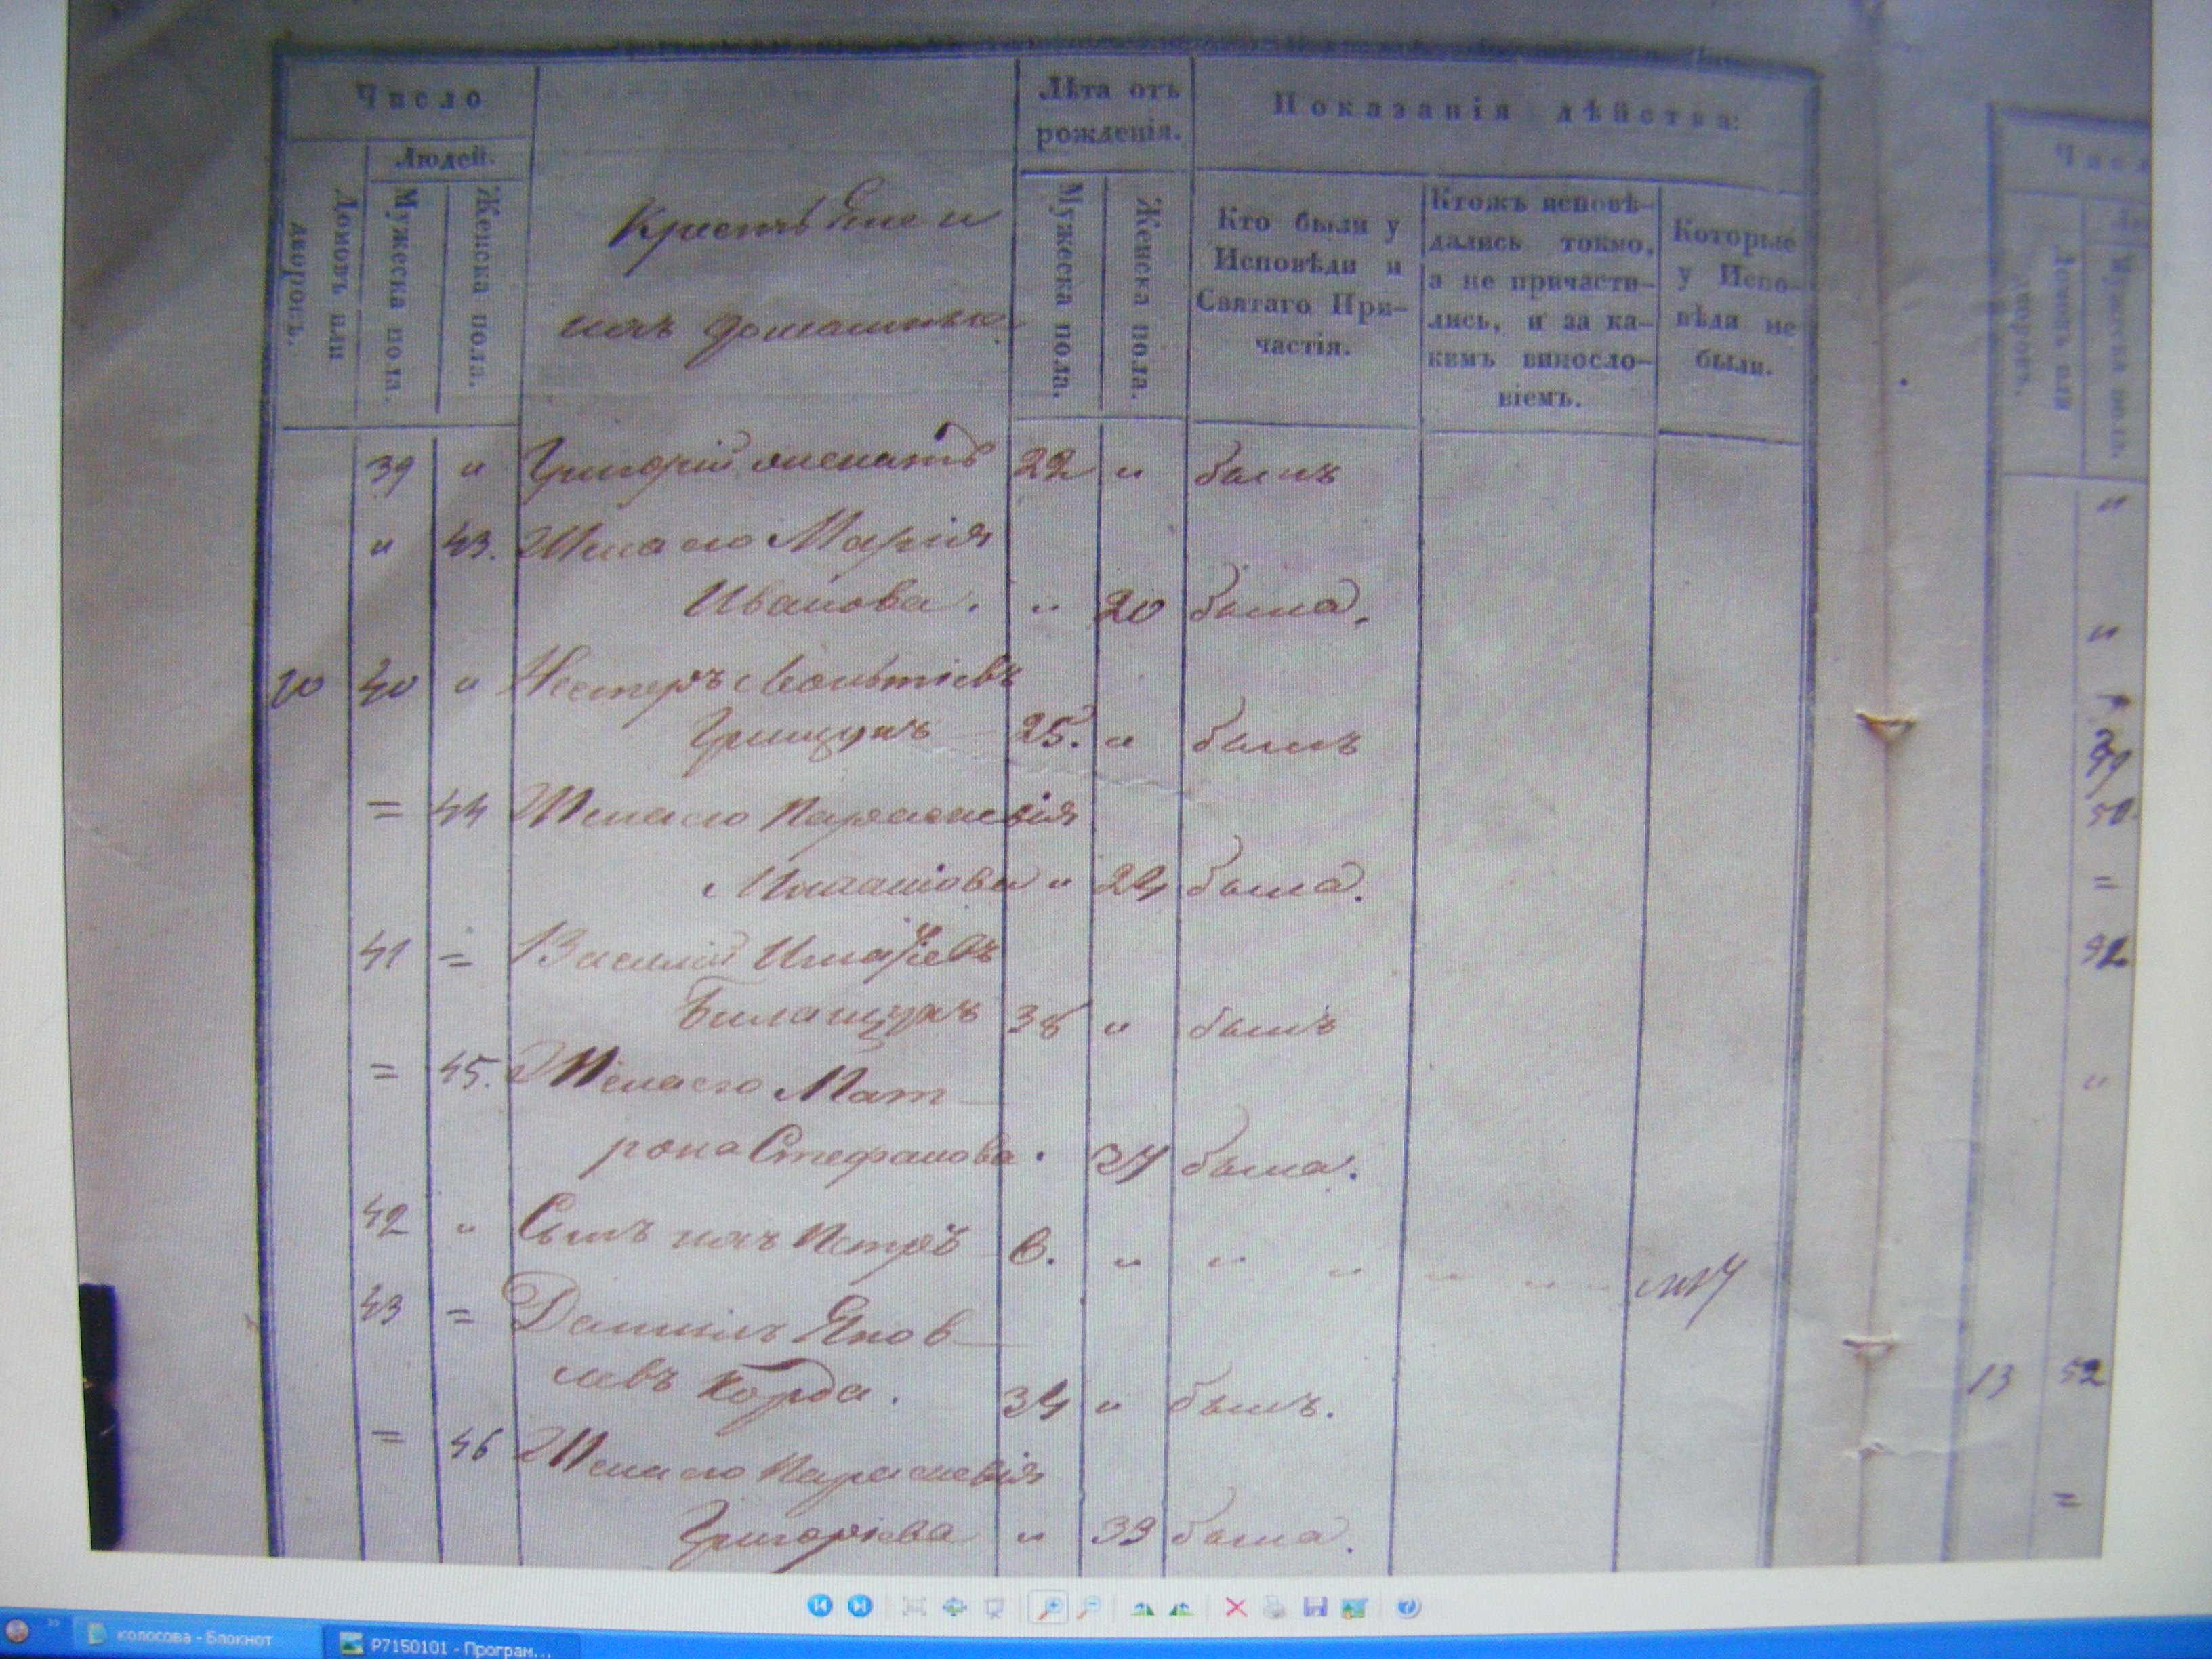 Число
Лѣта отъ рожденія.
Показанія дѣйства:
Людей.
Домовъ или дворовъ.
Мужеска пола.
Женска пола.
Мужеска пола.
Женска пола.
Кто были у Исповѣди и Святаго При-
частія.
Ктожъ исповѣ-
дались токмо,
а не причасти-
лись, и за ка-
кимъ виносло-
віемъ.
Которые
у Испо-
вѣди не
были.
их домашные
39 " Григорій 22 " былъ
" 43. Жена его Марія
Иванова. " 20 была.
10 40 " Несторъ Леонтіевъ
Грищукъ 25. " былъ
= 44 Жена его Параскевія
" 24 была.
41 = Василій Игнатіевъ
Билащукъ 38 " былъ
= 45. Жена его Мат
рона Стефанова. 37 была.
42 " Сынъ ихъ Петръ 6. " " " " "
43 = Даніилъ Яков
левъ Корда. 34 " былъ.
= 46 Жена его Параскевія
Григоріева " 33 была.
Числ
Домовъ или дворовъ.
Мужеска пола.
"
"
39
50
=
"
13 52
=
колосова - Блокнот
P7150101 - Програм...